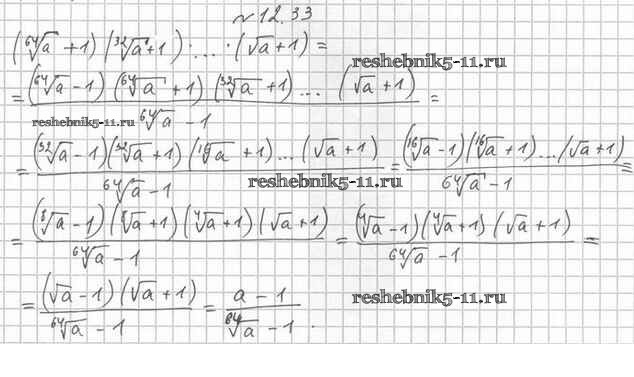 №12.33
(⁶⁴√a + 1) (³²√a + 1) · ... · (√a + 1) =
reshebnik5-11.ru
= (⁶⁴√a − 1) (⁶⁴√a + 1) (³²√a + 1) ... (√a + 1) / ⁶⁴√a − 1 =
reshebnik5-11.ru
= (³²√a − 1) (³²√a + 1) (¹⁶√a + 1) ... (√a + 1) / ⁶⁴√a − 1 = (¹⁶√a − 1) (¹⁶√a + 1) ... (√a + 1) / ⁶⁴√a − 1 =
reshebnik5-11.ru
= (⁸√a − 1) (⁸√a + 1) (⁴√a + 1) (√a + 1) / ⁶⁴√a − 1 = (⁴√a − 1) (⁴√a + 1) (√a + 1) / ⁶⁴√a − 1 =
= (√a − 1) (√a + 1) / ⁶⁴√a − 1 = a − 1 / ⁶⁴√a − 1 .
reshebnik5-11.ru